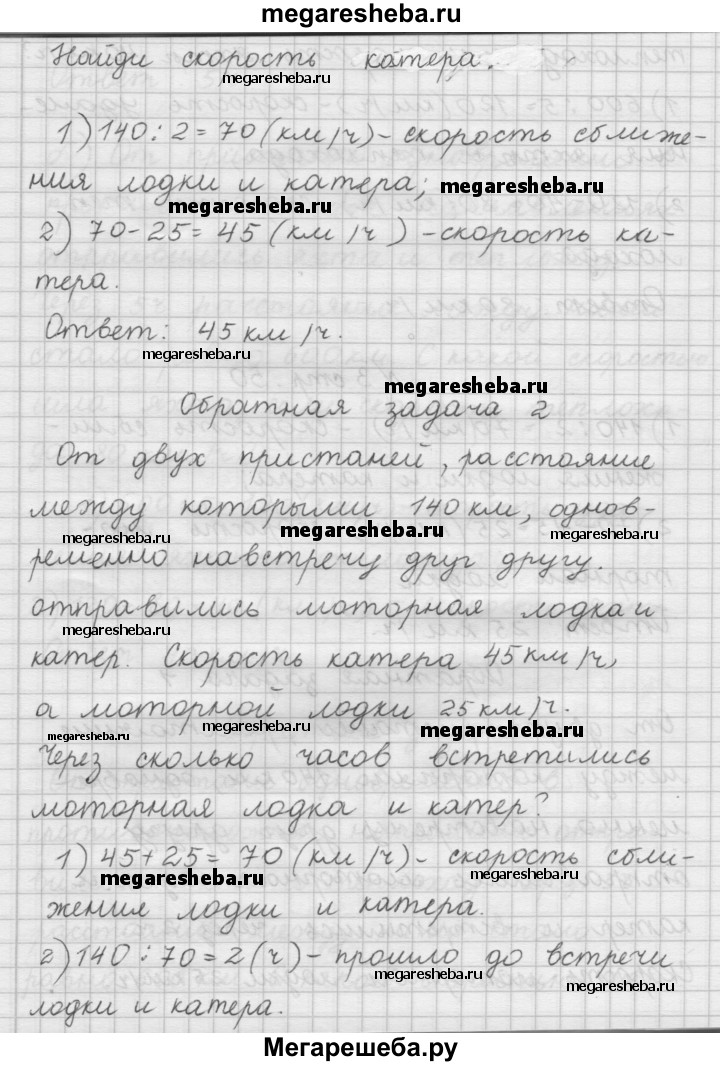 megaresheba.ru
Найди скорость катера.
megaresheba.ru
1) 140 : 2 = 70 (км/ч) - скорость сближе-
ния лодки и катера; megaresheba.ru
megaresheba.ru
2) 70 - 25 = 45 (км/ч) - скорость ка-
тера.
Ответ: 45 км/ч.
megaresheba.ru
megaresheba.ru
Обратная задача 2
От двух пристаней, расстояние
между которыми 140 км, однов-
megaresheba.ru
megaresheba.ru
megaresheba.ru
ременно навстречу друг другу.
отправились моторная лодка и
megaresheba.ru
катер. Скорость катера 45 км/ч,
а моторной лодки 25 км/ч.
megaresheba.ru
megaresheba.ru
megaresheba.ru
Через сколько часов встретились
моторная лодка и катер?
1) 45 + 25 = 70 (км/ч) - скорость сбли-
megaresheba.ru
megaresheba.ru
жения лодки и катера.
2) 140 : 70 = 2 (ч) - прошло до встречи
megaresheba.ru
лодки и катера.
Мегарешеба.ру